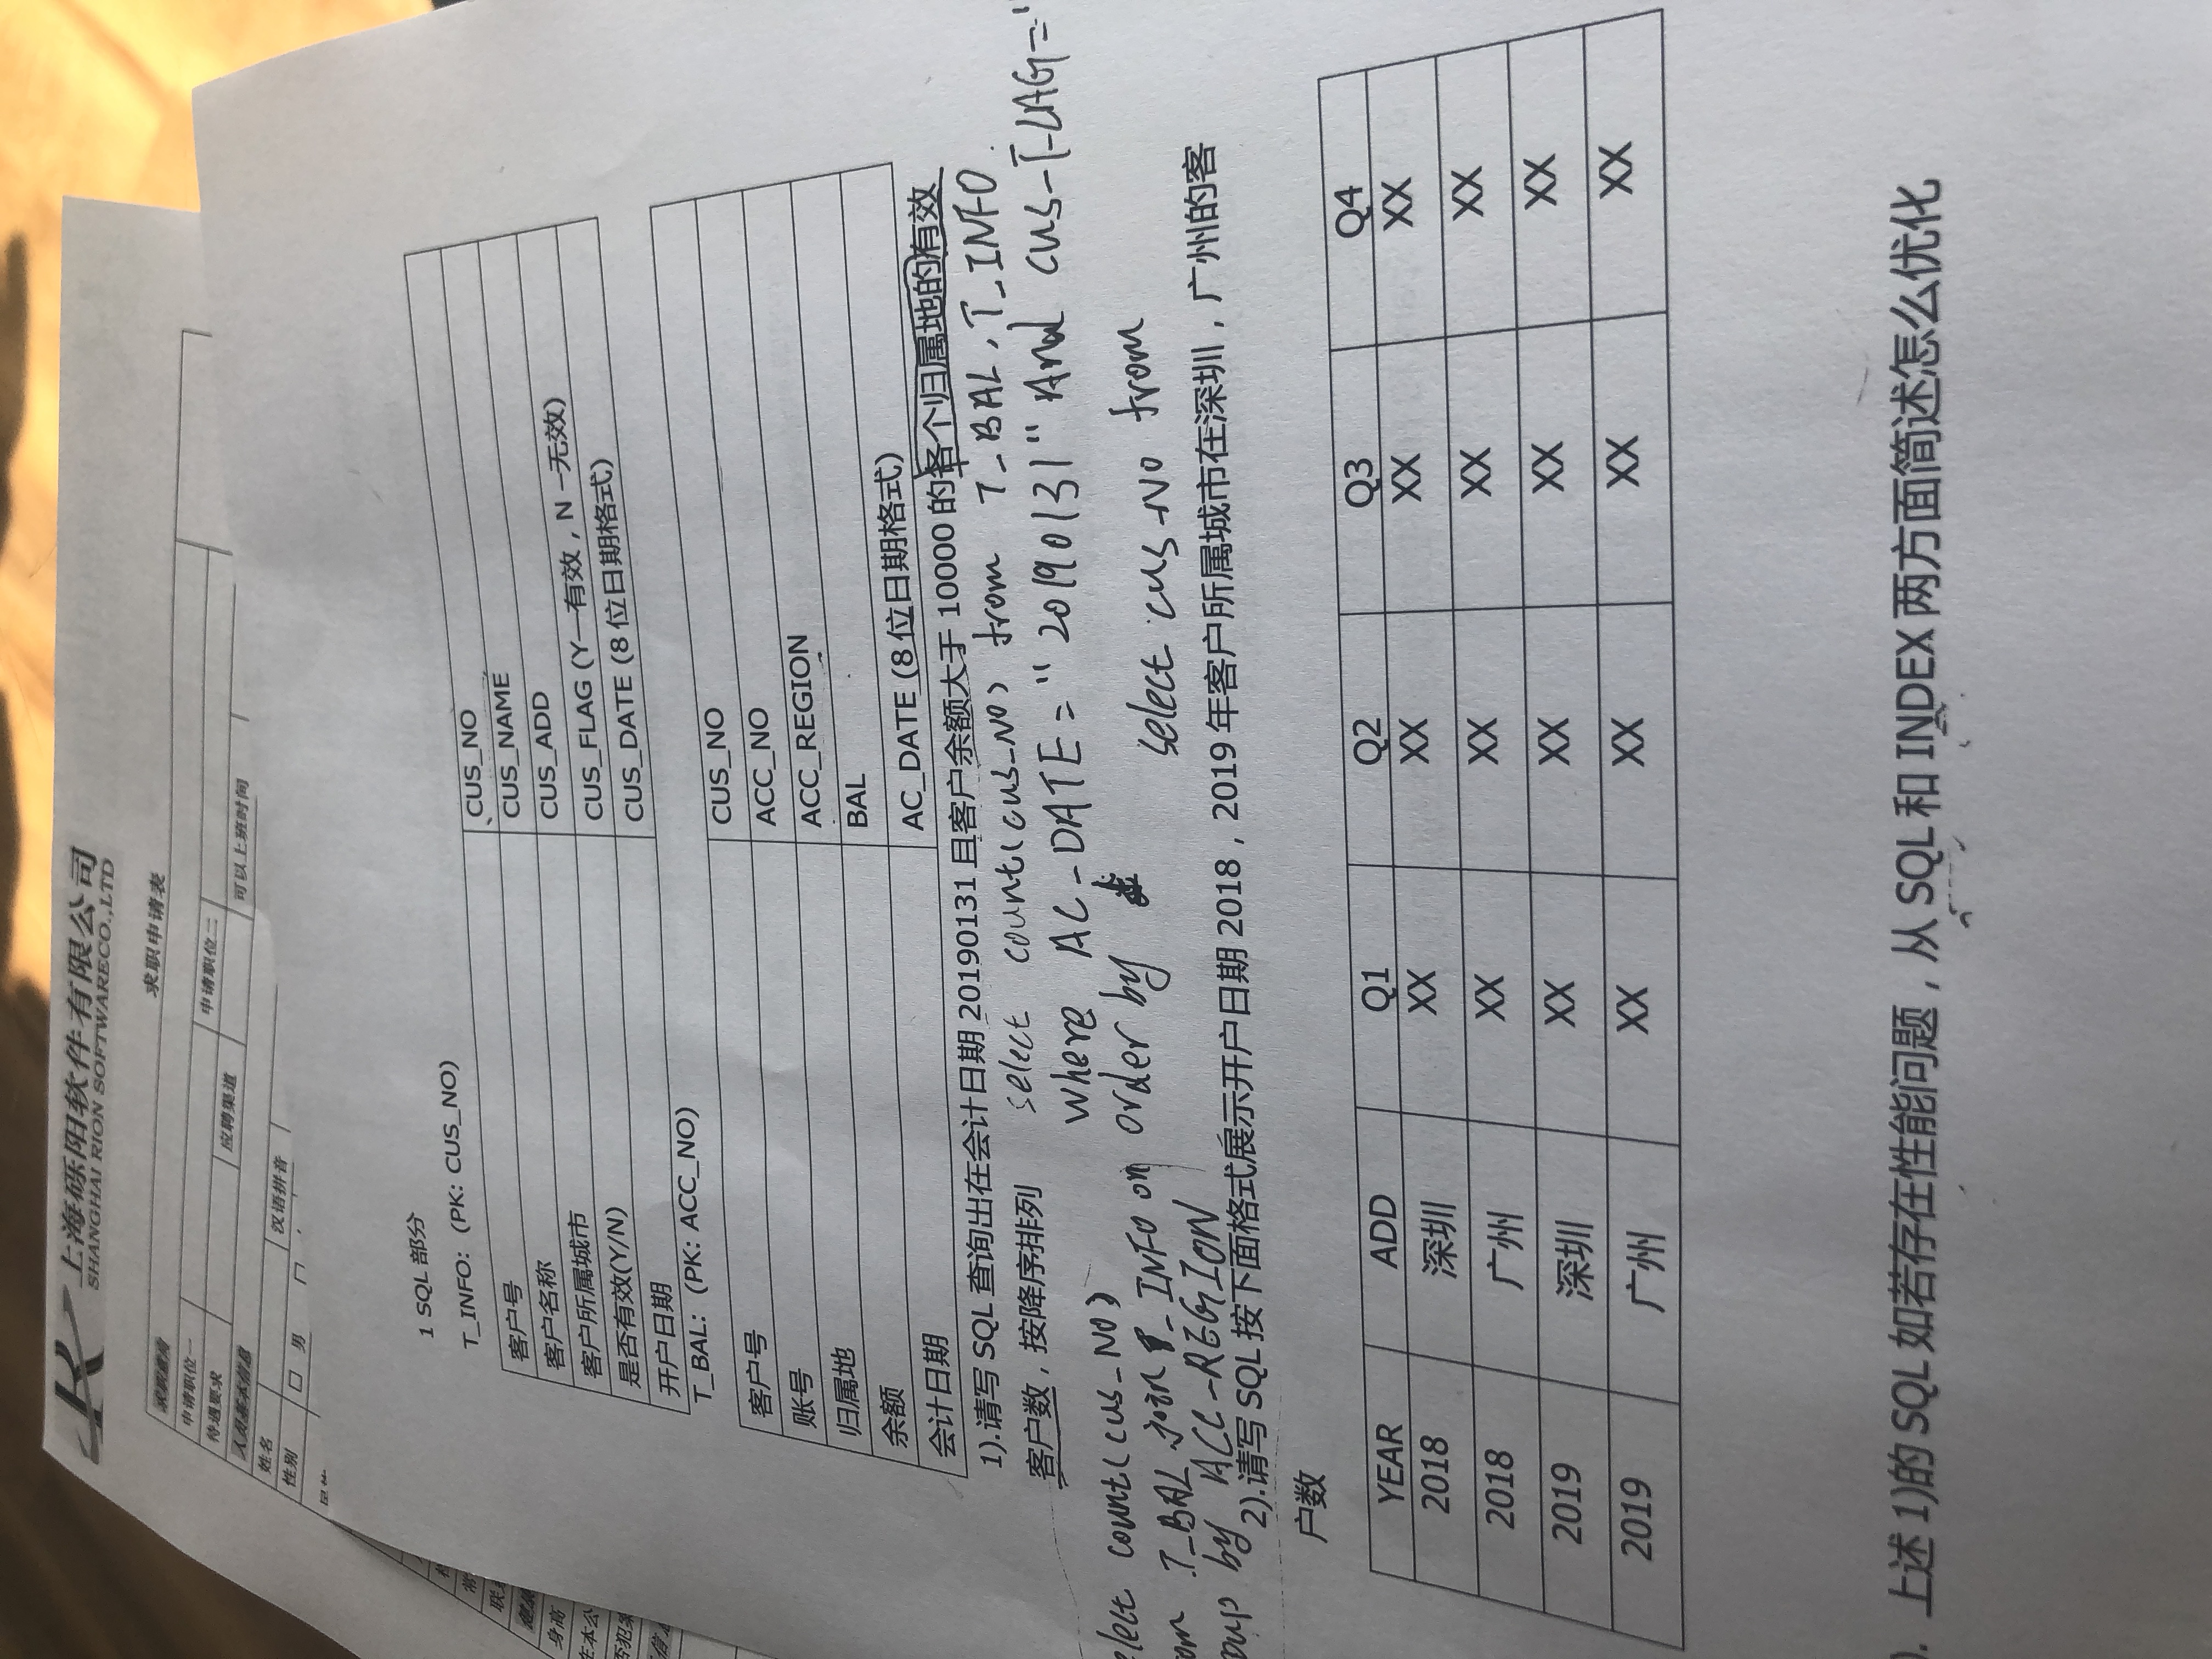 上海砾阳软件有限公司
SHANGHAI RION SOFTWARECO.,LTD
求职申请表
求职意向
申请职位一 申请职位二
待遇要求 应聘渠道 可以上班时间
人员基本信息
姓名 汉语拼音
性别 □ 男
身高
1 SQL 部分
T_INFO: (PK: CUS_NO)
客户号 CUS_NO
客户名称 CUS_NAME
客户所属城市 CUS_ADD
是否有效(Y/N) CUS_FLAG (Y—有效，N —无效)
开户日期 CUS_DATE (8 位日期格式)
T_BAL: (PK: ACC_NO)
客户号 CUS_NO
账号 ACC_NO
归属地 ACC_REGION
余额 BAL
会计日期 AC_DATE (8 位日期格式)
1).请写 SQL 查询出在会计日期 20190131 且客户余额大于 10000 的各个归属地的有效
客户数，按降序排列
select count(cus_NO) from T_BAL, T_INFO.
where AC_DATE = "20190131" And CUS_FLAG = "
order by
select cus_NO from
elect count(cus_NO)
om T_BAL join T_INFO on
oup by ACC_REGION
2).请写 SQL 按下面格式展示开户日期 2018，2019 年客户所属城市在深圳，广州的客
户数
YEAR ADD Q1 Q2 Q3 Q4
2018 深圳 XX XX XX XX
2018 广州 XX XX XX XX
2019 深圳 XX XX XX XX
2019 广州 XX XX XX XX
). 上述 1)的 SQL 如若存在性能问题，从 SQL 和 INDEX 两方面简述怎么优化